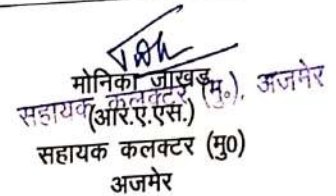 मोनिका जाखड़
सहायक कलक्टर (मु०), अजमेर
(आर.ए.एस.)
सहायक कलक्टर (मु0)
अजमेर